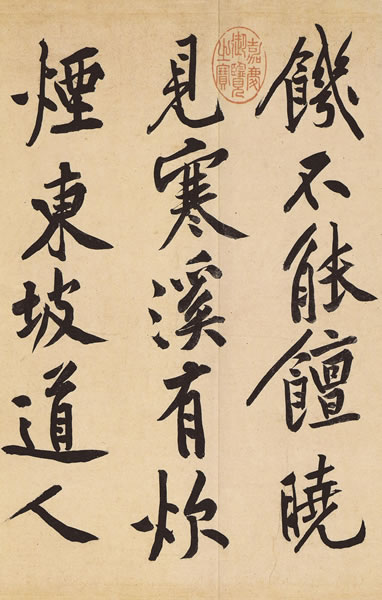 饑不能饘曉
嘉慶御覽之寶
見寒溪有炊
煙東坡道人